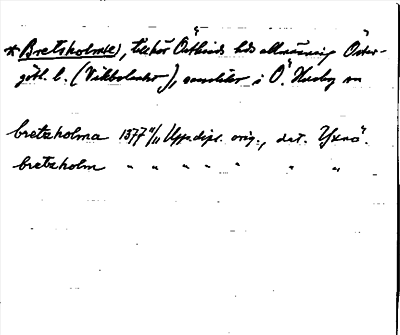 * Bretsholm(e), tillhör Östkinds hds allmänning Öster-
götl. l. (Vikbolandet), i Ö. Husby sn
bretzholma 1377 11/11 Uppsdipl. orig., dat. Yxnö.
bretzholm " " " " " "